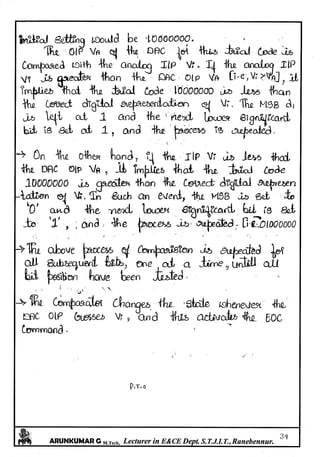 Initial setting would be 10000000.
The O/P VA of the DAC for this trial code is
Compared with the analog I/P Vi. If the analog I/P
Vi is greater than the DAC O/P VA [i.e, Vi > VA], it
implies that the trial code 10000000 is less than
the correct digital representation of Vi. The MSB d1
is left at 1 and the next lower significant
bit is set at 1, and the process is repeated.
→ On the other hand, if the I/P Vi is less that
the DAC O/P VA, it implies that the trial code
10000000 is greater than the correct digital represen
-tation of Vi. In such an event, the MSB is set to
'0' and the next lower significant bit is set
to '1', and the process is repeated. [i.e 01000000
→ The above process of Comparision is repeated for
all subsequent bits, one at a time, untill all
bit position have been tested.
→ The Comparator changes the state whenever the
DAC O/P crosses Vi, and this activates the EOC
Command.
P.T.O
ARUNKUMAR G M.Tech, Lecturer in E&CE Dept. S.T.J.I.T., Ranebennur. 39